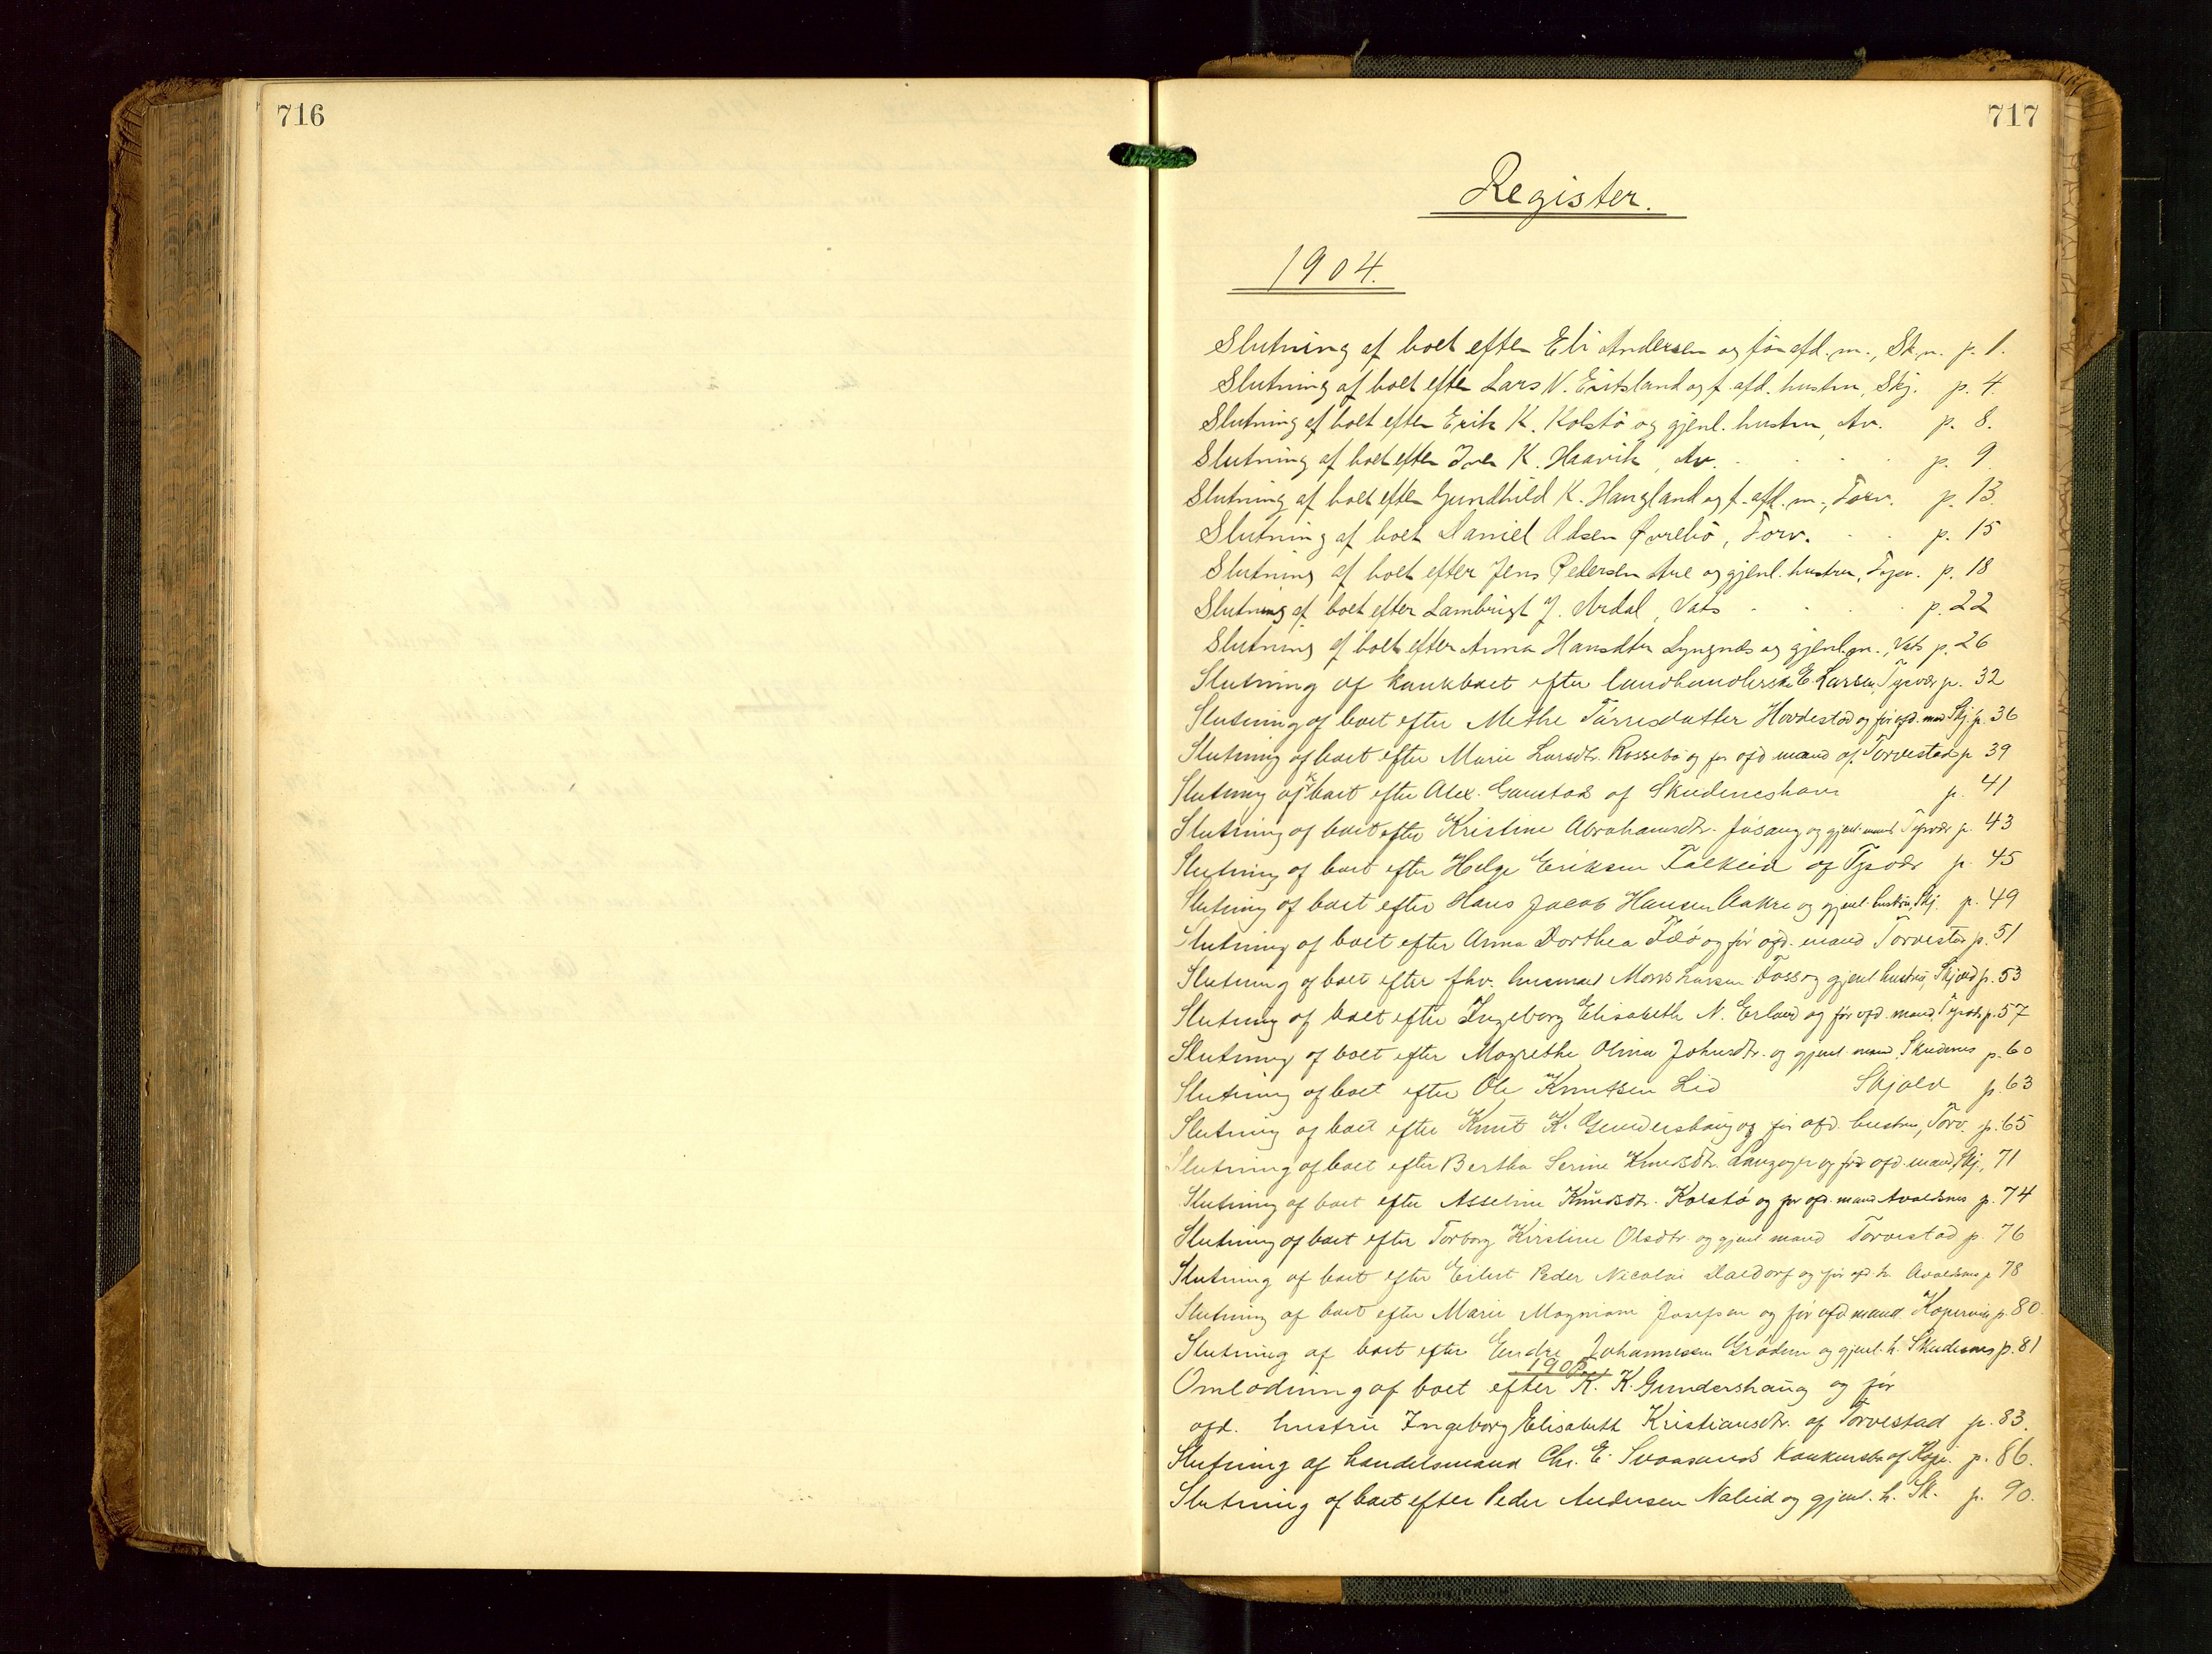 716
717
Register.
1904.
Slutning af boet efter Eli Andersen og før afd. m., Sk.n. p. 1.
Slutning af boet efter Lars N. Eritsland og f. afd. hustru, Skj. p. 4.
Slutning af boet efter Erik K. Kolstø og gjenl. hustru, Av. p. 8.
Slutning af boet efter Iver K. Haavik, Av. p. 9
Slutning af boet efter Gundhild K. Haugland og f. afd. m., Torv. p. 13.
Slutning af boet Daniel Olsen Øvrebø, Torv. p. 15
Slutning af boet efter Jens Pedersen Are og gjenl. hustru, Tysv. p. 18
Slutning af boet efter Lambrigt J. Årdal, Vats p. 22
Slutning af boet efter Anna Hansdtr Lyngnæs og gjenl. m., Vats p. 26
Slutning af konkboet efter landhandlerske E. Larsen, Tysvær p. 32
Slutning af boet efter Methe Tørresdatter Hovdestad og før afd. mand Skj. p. 36
Slutning af boet efter Marie Larsdtr. Rossebø og før afd mand af Torvestad p 39
Slutning af k boet efter Alex. Gaustad af Skudeneshavn p. 41
Slutning af boet efter Kristine Abrahamsdtr. Jøsang og gjenl. mand Tysvær p. 43
Slutning af boet efter Helge Eriksen Falkeid af Tysvær p. 45
Slutning af boet efter Hans Jacob Hansen Aakre og gjenl. hustru, Skj. p. 49
Slutning af boet efter Anna Dorthea Fæø og før afd. mand Torvestad p. 51
Slutning af boet efter fhv. husmand Mons Larsen Foss og gjenl hustru, Skjold p. 53
Slutning af boet efter Ingeborg Elisabeth N. Erland og før afd. mand Tysvær p. 57
Slutning af boet efter Magrethe Olina Johnsdtr. og gjenl. mand. Skudenes p. 60
Slutning af boet efter Ole Knutsen Lid Skjold p. 63
Slutning af boet efter Knut K. Gundershaug og før afd. hustru, Torv. p. 65
Slutning af boet efter Bertha Serine Knudsdtr. Langåger og før afd. mand, Skj., 71
Slutning af boet efter Asseline Knudsdtr. Kolstø og før afd. mand Avaldsnes p. 74
Slutning af boet efter Torborg Kirstine Olsdtr. og gjenl mand Torvestad p. 76
Slutning af boet efter Eilert Peder Nicolai Valdorf og før afd. h. Avaldsnes p 78
Slutning af boet efter Marie Magniam Josefsen og før afd mand. Kopervig p. 80.
Slutning af boet efter Endre Johannessen Grødem og gjenl. h. Skudenes p. 81
1905.
Omlodning af boet efter K. K. Gundershaug og før
afd. hustru Ingeborg Elisabeth Kristiansdtr. af Torvestad p. 83.
Slutning af handelsmand Chr. E. Svaasands konkursbo af Kopv. p. 86.
Slutning af boet efter Peder Andersen Naleid og gjenl. h. Sk. p. 90.